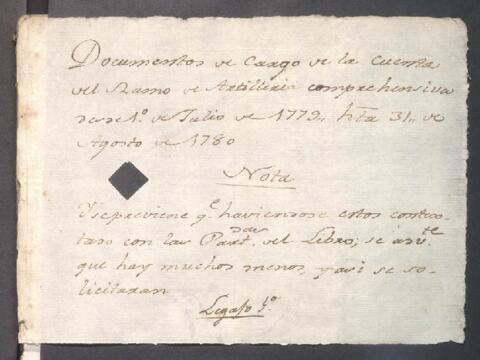 Documentos de Cargo de la Cuenta
del Ramo de Artilleria comprehensiva
desde 1º. de Julio de 1779,, hta 31,, de
Agosto de 1780
Nota
Se previene qe. haviendose estos contex-
tado con las Partdas. del Libro; se advte.
que hay muchos menos, y asi se so-
licitaran
Legajo 1º.